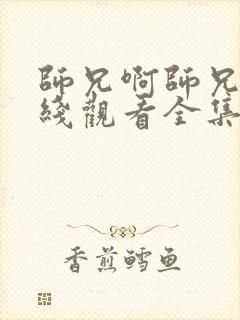 師兄啊師兄
綫觀看全集
香煎鳕鱼